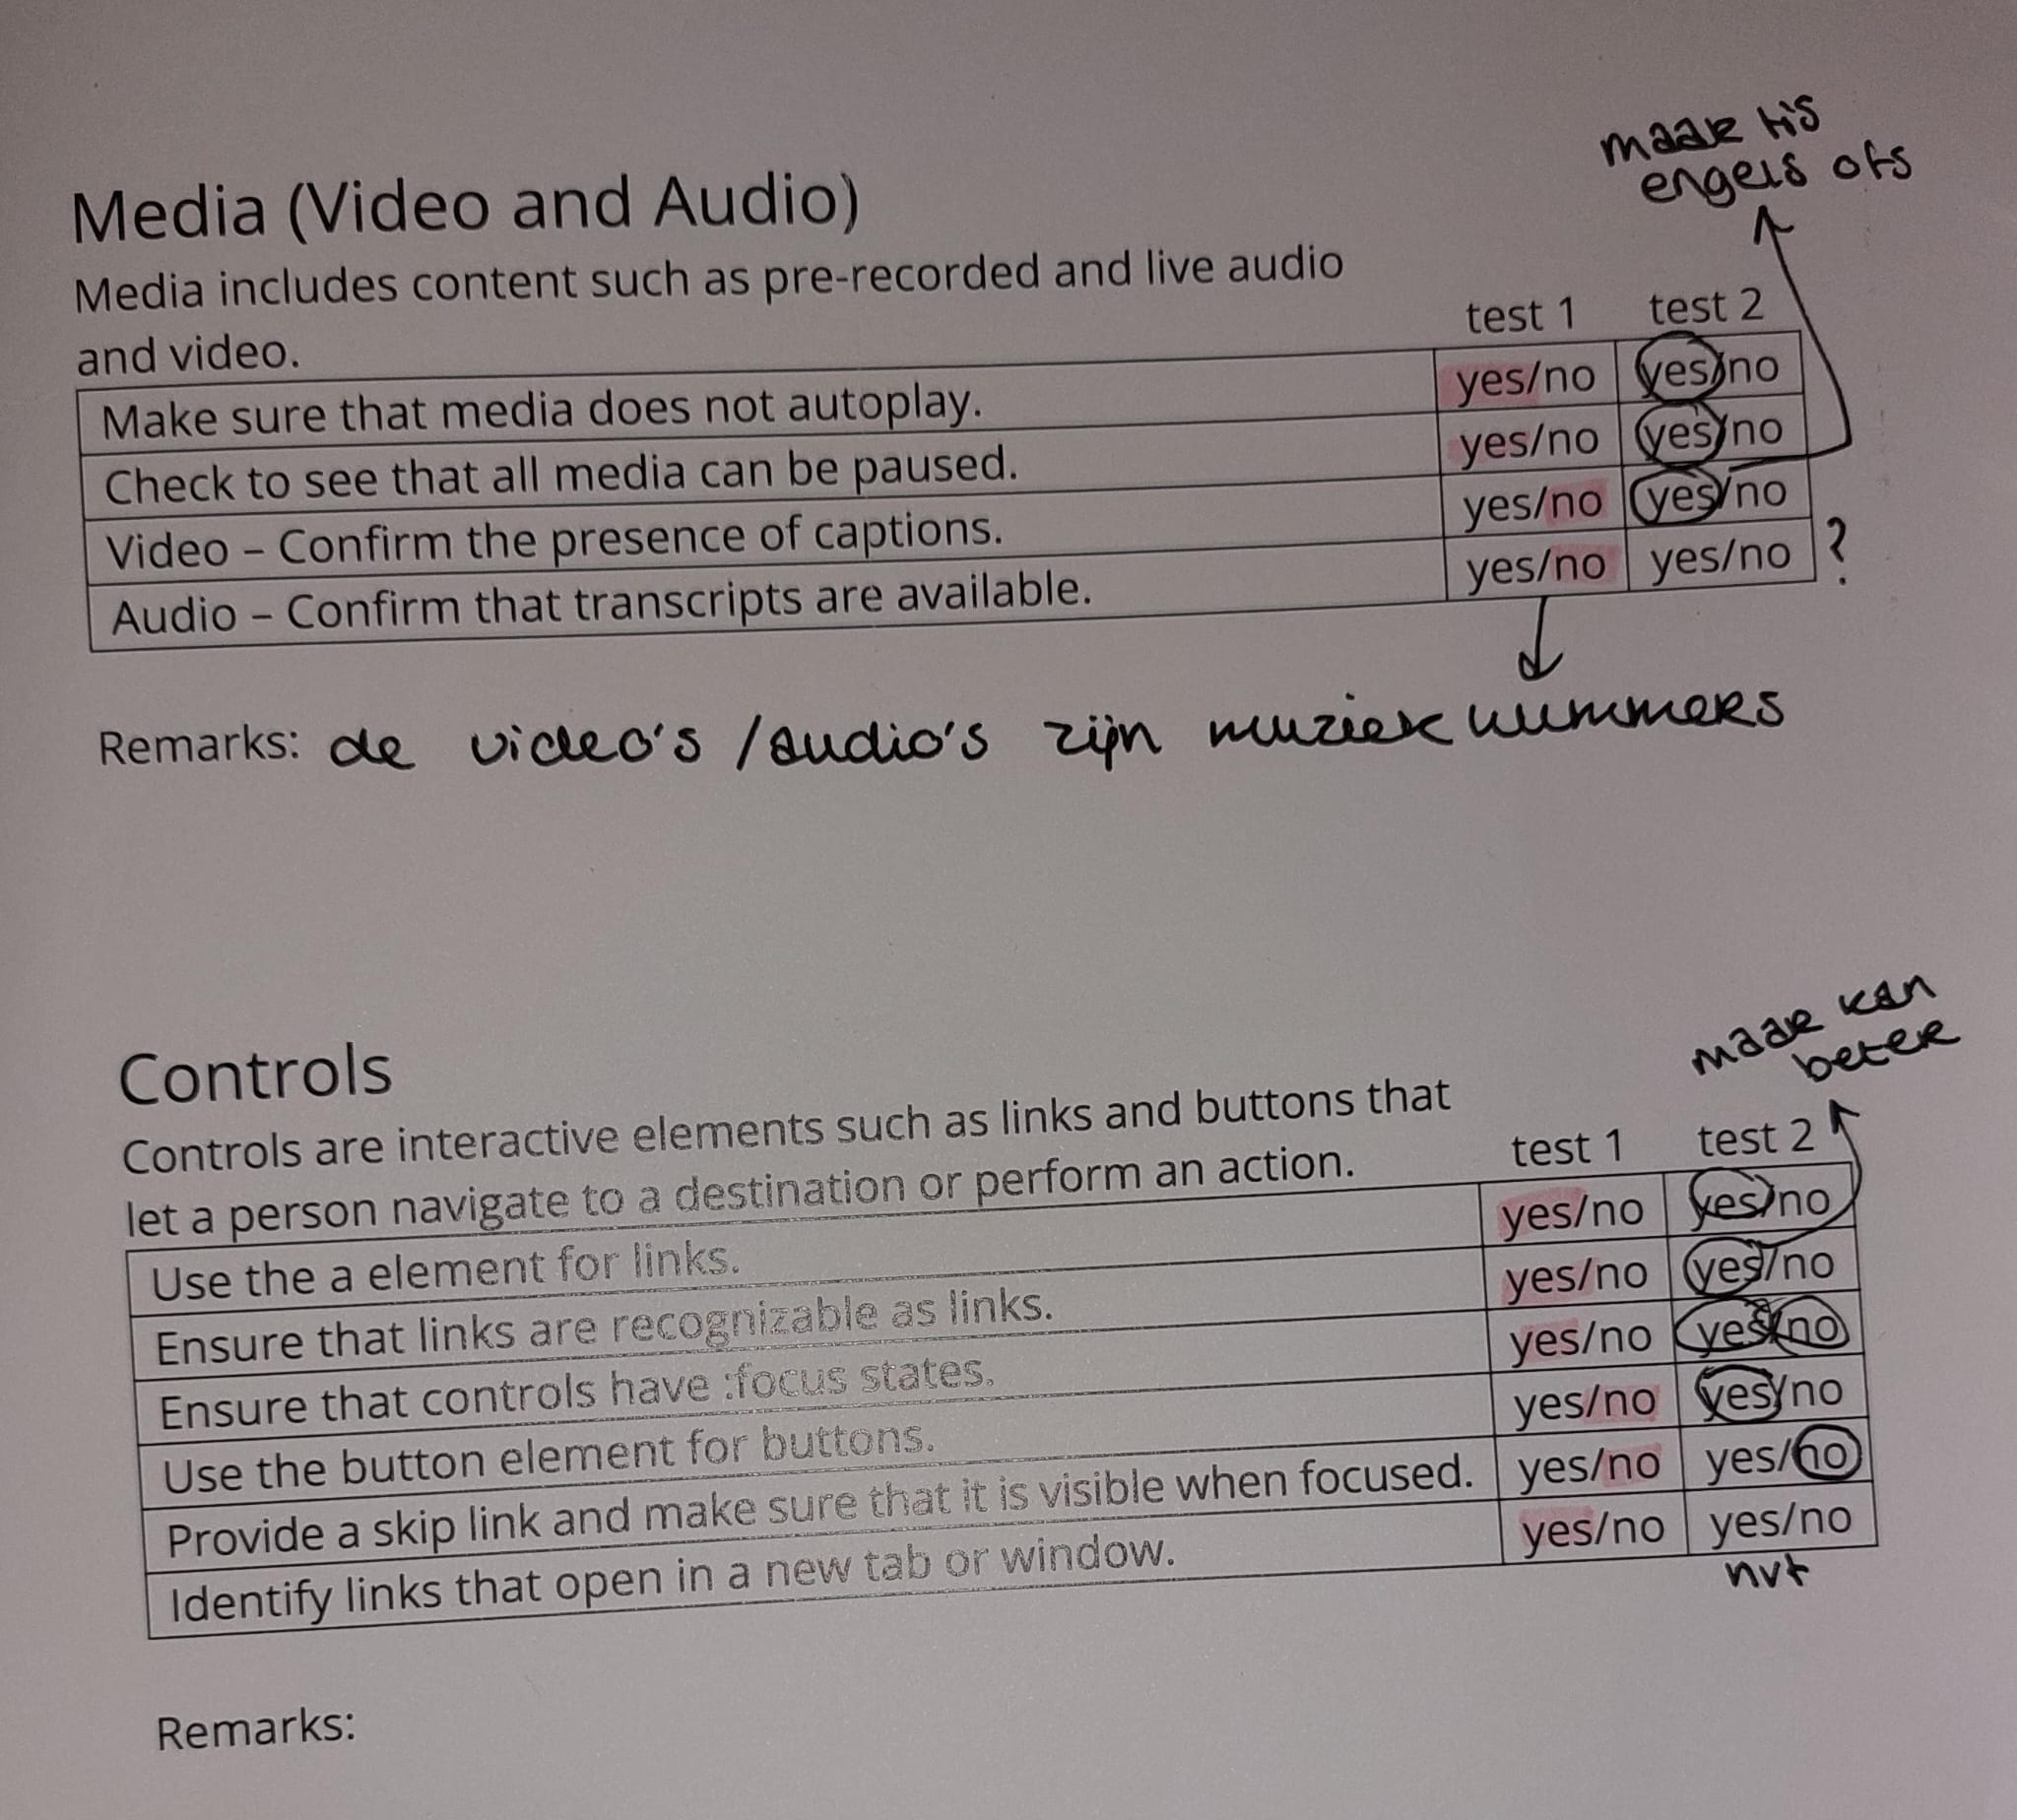 maar tis
engels ofs
Media (Video and Audio)
Media includes content such as pre-recorded and live audio
and video.
test 1 test 2
Make sure that media does not autoplay. yes/no yes/no
Check to see that all media can be paused. yes/no yes/no
Video – Confirm the presence of captions. yes/no yes/no
Audio – Confirm that transcripts are available. yes/no yes/no ?
Remarks: de video's /audio's zijn muzieknummers
maar kan
beter
Controls
Controls are interactive elements such as links and buttons that
let a person navigate to a destination or perform an action.
test 1 test 2
Use the a element for links. yes/no yes/no
Ensure that links are recognizable as links. yes/no yes/no
Ensure that controls have :focus states. yes/no yes/no
Use the button element for buttons. yes/no yes/no
Provide a skip link and make sure that it is visible when focused. yes/no yes/no
Identify links that open in a new tab or window. yes/no yes/no
nvt
Remarks: